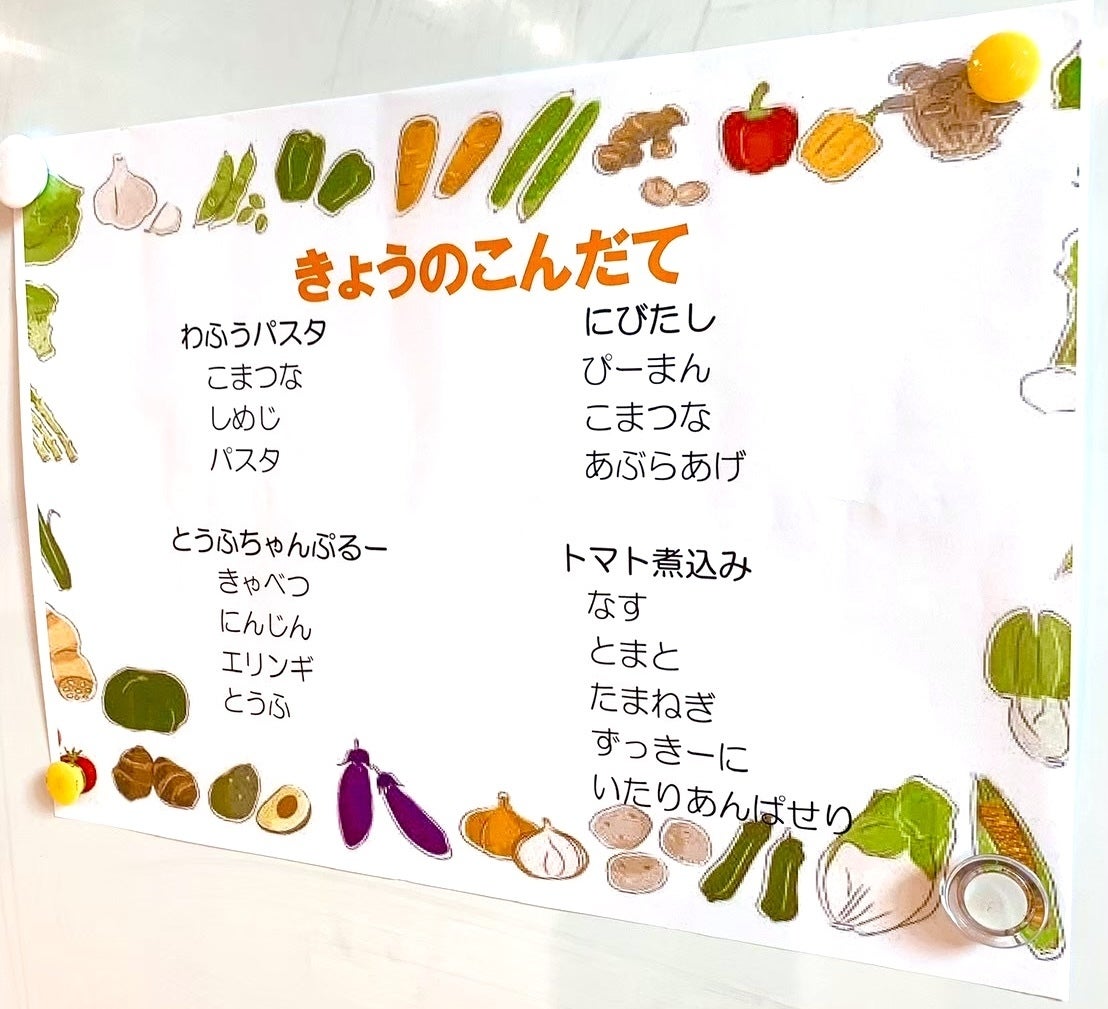 きょうのこんだて
わふうパスタ
こまつな
しめじ
パスタ
とうふちゃんぷるー
きゃべつ
にんじん
エリンギ
とうふ
にびたし
ぴーまん
こまつな
あぶらあげ
トマト煮込み
なす
とまと
たまねぎ
ずっきーに
いたりあんぱせり